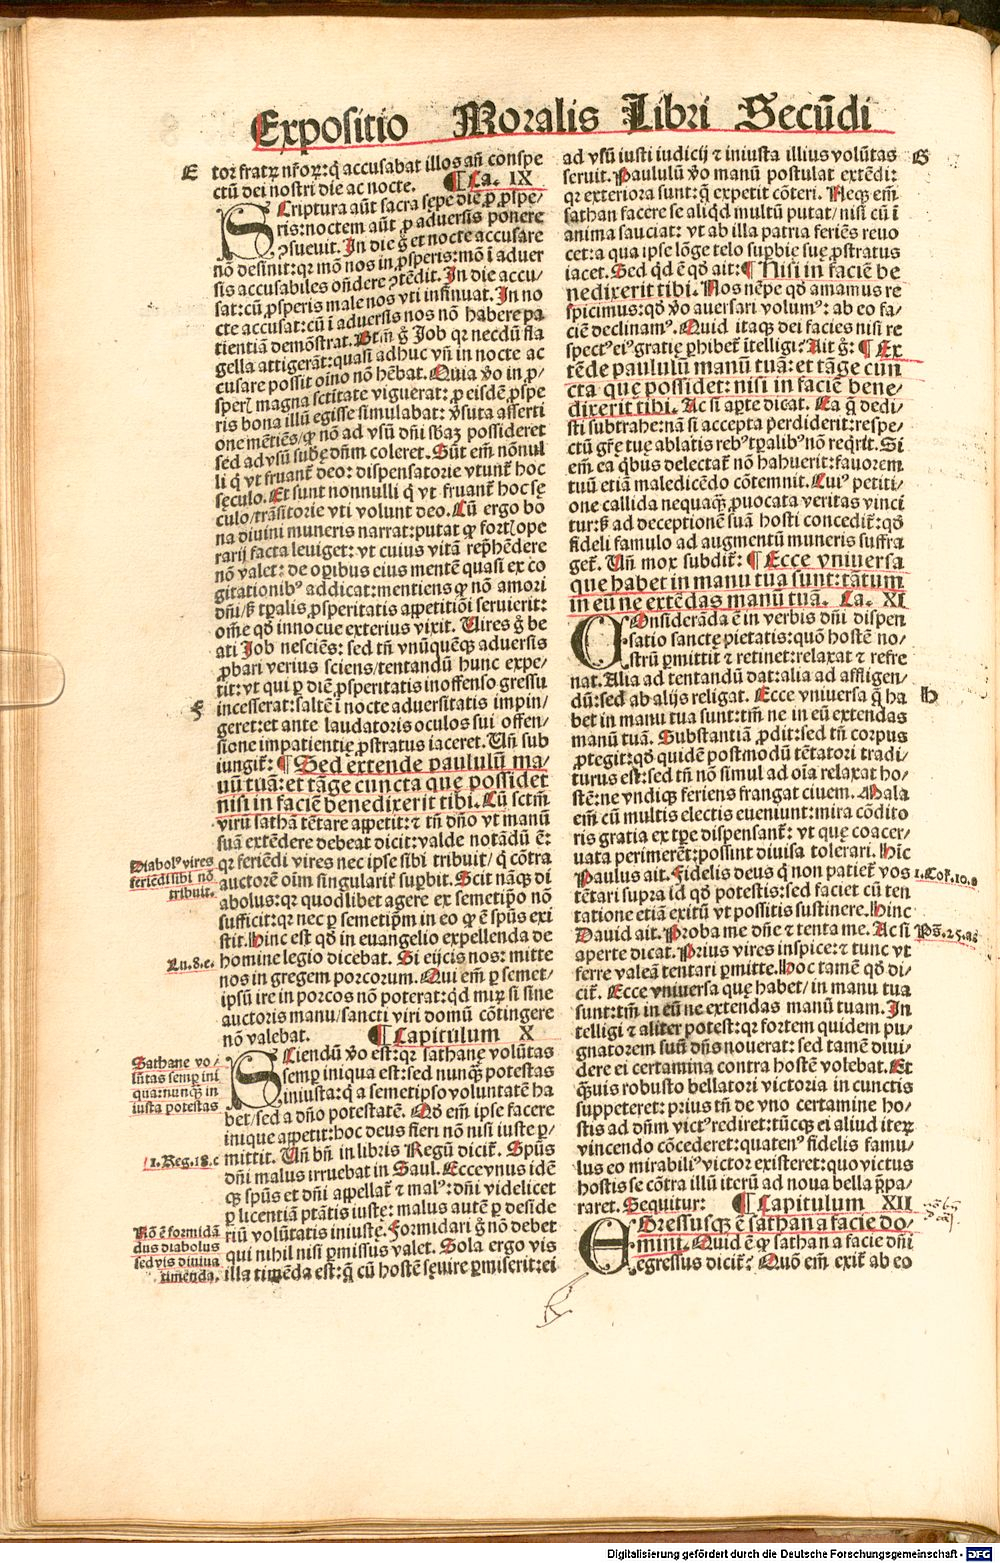 Expositio Moralis Libri Secūdi
E
tor fratrꝝ nr̄oꝝ: q̇ accusabat illos añ conspe
ctū dei nostri die ac nocte. ¶ Ca. IX
SCriptura aūt sacra sepe die ꝓ ꝓspe/
ris: noctem aūt ꝓ aduersis ponere
ↄsueuit. In die g̊ et nocte accusare
nō desinit: qꝛ mō nos in ꝓsperis: mō ī aduer
sis accusabiles oñdere ↄtēdit. In die accu/
sat: cū ꝓsperis male nos vti insinuat. In no
cte accusat: cū ī aduersis nos nō habere pa
tientiā demōstrat. Btm̄ g̊ Job qꝛ necdū fla
gella attigerāt: quasi adhuc vñ in nocte ac
cusare possit oīno nō hēbat. Quia v̊o in ꝓ/
sperꝭ magna sctitate viguerat: ꝓ eisdē ꝓspe
ris bona illū egisse simulabat: v̄suta asserti
one mētiēs/ ꝙ nō ad vsū dñi sb̄aꝫ possideret
sed ad vsū subę dñm coleret. Sūt em̄ nōnul
li q̇ vt fruant̄ deo: dispensatorie vtunt̄ hoc
sęculo. Et sunt nonnulli q̇ vt fruant̄ hoc sę
culo/ trāsitorie vti volunt deo. Cū ergo bo
na diuini muneris narrat: putat ꝙ fortꝭ ope
rarij facta leuiget: vt cuius vitā rep̄hēdere
nō valet: de oꝑibus eius mentē quasi ex co
gitationibꝰ addicat: mentiens ꝙ nō amori
dñi/ ß tꝑalis ꝓsperitatis appetitiōi seruierit:
om̄e qd̊ innocue exterius vixit. Uires g̊ be
ati Job nesciēs: sed tñ vnūquēqꝫ aduersis
ꝓbari verius sciens/ tentandū hunc expe/
tit: vt qui ꝑ diē ꝓsperitatis inoffenso gressu
F
incesserat: saltē ī nocte aduersitatis impin/
geret: et ante laudatoris oculos sui offen/
sione impatientię ꝓstratus iaceret. Uñ sub
iungit̄: ¶ Sed extende paululū ma/
nū tuā: et tāge cuncta que possidet
nisi in faciē benedixerit tibi. Cū sctm̄
virū sathā tētare appetit: ⁊ tñ dño vt manū
suā extēdere debeat dicit: valde notādū ē:
Diabolꝰ vires
feriēdi sibi nō
tribuit.
qꝛ feriēdi vires nec ipse sibi tribuit/ q̇ cōtra
auctorē oīm singularit̄ suꝑbit. Scit nāqꝫ di
abolus: qꝛ quodlibet agere ex semetiꝑo nō
sufficit: qꝛ nec ꝑ semetip̄m in eo ꝙ ē sp̄us exi
stit. Hinc est qd̊ in euangelio expellenda de
Lu. 8. e.
homine legio dicebat. Si eijcis nos: mitte
nos in gregem porcorum. Qui em̄ ꝑ semet/
ipsū ire in porcos nō poterat: qd̓ miꝝ si sine
auctoris manu/ sancti viri domū cōtingere
nō valebat. ¶ Capitulum X
Sathane vo/
lūtas semꝑ ini
qua: nunqꝫ in
iusta potestas
SCiendū v̊o est: qꝛ sathanę volūtas
semꝑ iniqua est: sed nunqꝫ potestas
iniusta: q̇ a semetipso voluntatē ha
bet/ sed a dño potestatē. Qd̊ em̄ ipse facere
inique appetit: hoc deus fieri nō nisi iuste ꝑ/
1. Reg. 18. c
mittit. Uñ bñ in libris Regū dicit̄. Sp̄us
dñi malus irruebat in Saul. Ecce vnus idē
qꝫ sp̄us et dñi appellat̄ ⁊ malꝰ: dñi videlicet
ꝑ licentiā ptātis iuste: malus autē ꝑ deside
Nō ē formidā
dus diabolus
sed vis diuina
timenda.
riū volūtatis iniustę. Formidari g̊ nō debet
qui nihil nisi ꝑmissus valet. Sola ergo vis
illa timēda est: q̄ cū hostē sęuire ꝑmiserit: ei
ad vsū iusti iudicij ⁊ iniusta illius volūtas
G
seruit. Paululū v̊o manū postulat extēdi:
qꝛ exteriora sunt: q̄ expetit cōteri. Neqꝫ em̄
sathan facere se aliqd̓ multū putat/ nisi cū ī
anima sauciat: vt ab illa patria feriēs reuo
cet: a qua ipse lōge telo suꝑbię suę ꝓstratus
iacet. Sed qd̓ ē qd̊ ait: ¶ Nisi in faciē be
nedixerit tibi. Nos nēpe qd̊ amamus re
spicimus: qd̊ v̊o auersari volumꝰ: ab eo fa/
ciē declinamꝰ. Quid itaqꝫ dei facies nisi re
spectꝰ eiꝰ gratię ꝑhibet̄ ītelligi? Ait g̊: ¶ Ex
tēde paululū manū tuā: et tāge cun
cta que possidet: nisi in faciē bene/
dixerit tibi. Ac si aꝑte dicat. Ea q̄ dedi/
sti subtrahe: nā si accepta perdiderit: respe/
ctū gr̄e tuę ablatis rebꝰ tꝑalibꝰ nō reqͥrit. Si
em̄ ea qͥbus delectat̄ nō habuerit: fauorem
tuū etiā maledicēdo cōtemnit. Cuiꝰ petiti/
one callida nequaqꝫ ꝓuocata veritas vinci
tur: ß ad deceptionē suā hosti concedit̄: qd̊
fideli famulo ad augmentū muneris suffra
get̄. Uñ mox subdit̄: ¶ Ecce vniuersa
que habet in manu tua sunt: tātum
in eū ne extēdas manū tuā. Ca. XI
COnsiderāda ē in verbis dñi dispen
satio sanctę pietatis: quō hostē no/
strū ꝑmittit ⁊ retinet: relaxat ⁊ refre
nat. Alia ad tentandū dat: alia ad affligen/
dū: sed ab alijs religat. Ecce vniuersa q̄ ha
H
bet in manu tua sunt: tm̄ ne in eū extendas
manū tuā. Substantiā ꝓdit: sed tñ corpus
ꝓtegit: qd̊ quidē postmodū tētatori tradi/
turus est: sed tñ nō simul ad oīa relaxat ho/
stē: ne vndiqꝫ feriens frangat ciuem. Mala
em̄ cū multis electis eueniunt: mira cōdito
ris gratia ex tꝑe dispensant̄: vt que coacer/
uata perimerēt: possint diuisa tolerari. Hīc
Paulus ait. Fidelis deus q̇ non patiet̄ vos
1. Cor. 10. c
tētari supra id qd̊ potestis: sed faciet cū ten
tatione etiā exitū vt possitis sustinere. Hinc
Dauid ait. Proba me dñe ⁊ tenta me. Ac si
Ps̄. 25. a
aperte dicat. Prius vires inspice: ⁊ tunc vt
ferre valeā tentari ꝑmitte. Hoc tamē qd̊ di/
cit̄. Ecce vniuersa que habet/ in manu tua
sunt: tm̄ in eū ne extendas manū tuam. In
telligi ⁊ aliter potest: qꝛ fortem quidem pu/
gnatorem suū dñs nouerat: sed tamē diui/
dere ei certamina contra hostē volebat. Et
q̄uis robusto bellatori victoria in cunctis
suppeteret: prius tñ de vno certamine ho/
stis ad dñm victꝰ rediret: tūcqꝫ ei aliud iteꝝ
vincendo cōcederet: quatenꝰ fidelis famu/
lus eo mirabiliꝰ victor existeret: quo victus
hostis se cōtra illū iterū ad noua bella p̄pa/
raret. Sequitur: ¶ Capitulum XII
EGressusqꝫ ē sathan a facie do/
mini. Quid ē ꝙ sathan a facie dñi
egressus dicit̄? Quō em̄ exit̄ ab eo
Digitalisierung gefördert durch die Deutsche Forschungsgemeinschaft - DFG